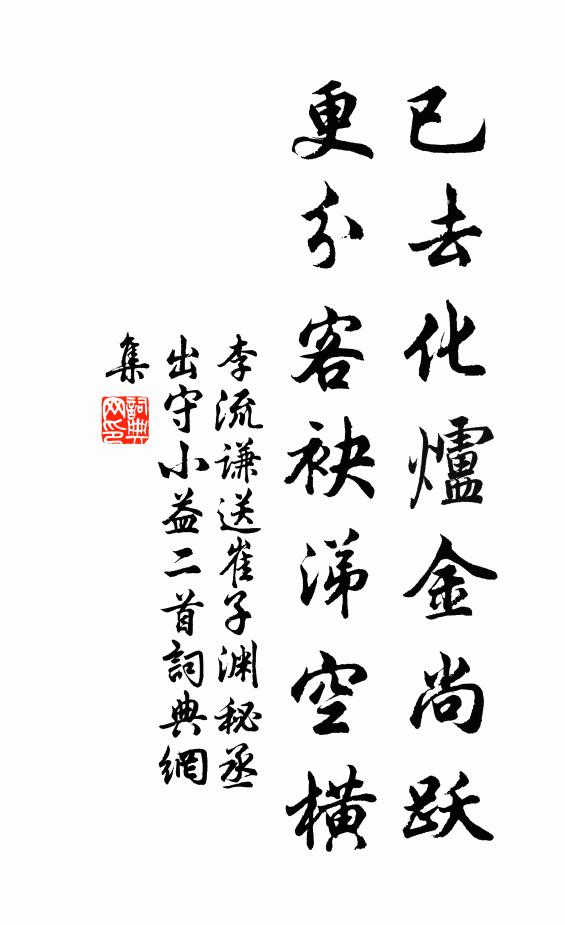 已去化爐金尚跃
更分客袂涕空橫
李流谦送崔子渊秘丞
出守小益二首詞典網
集
詞典
网印